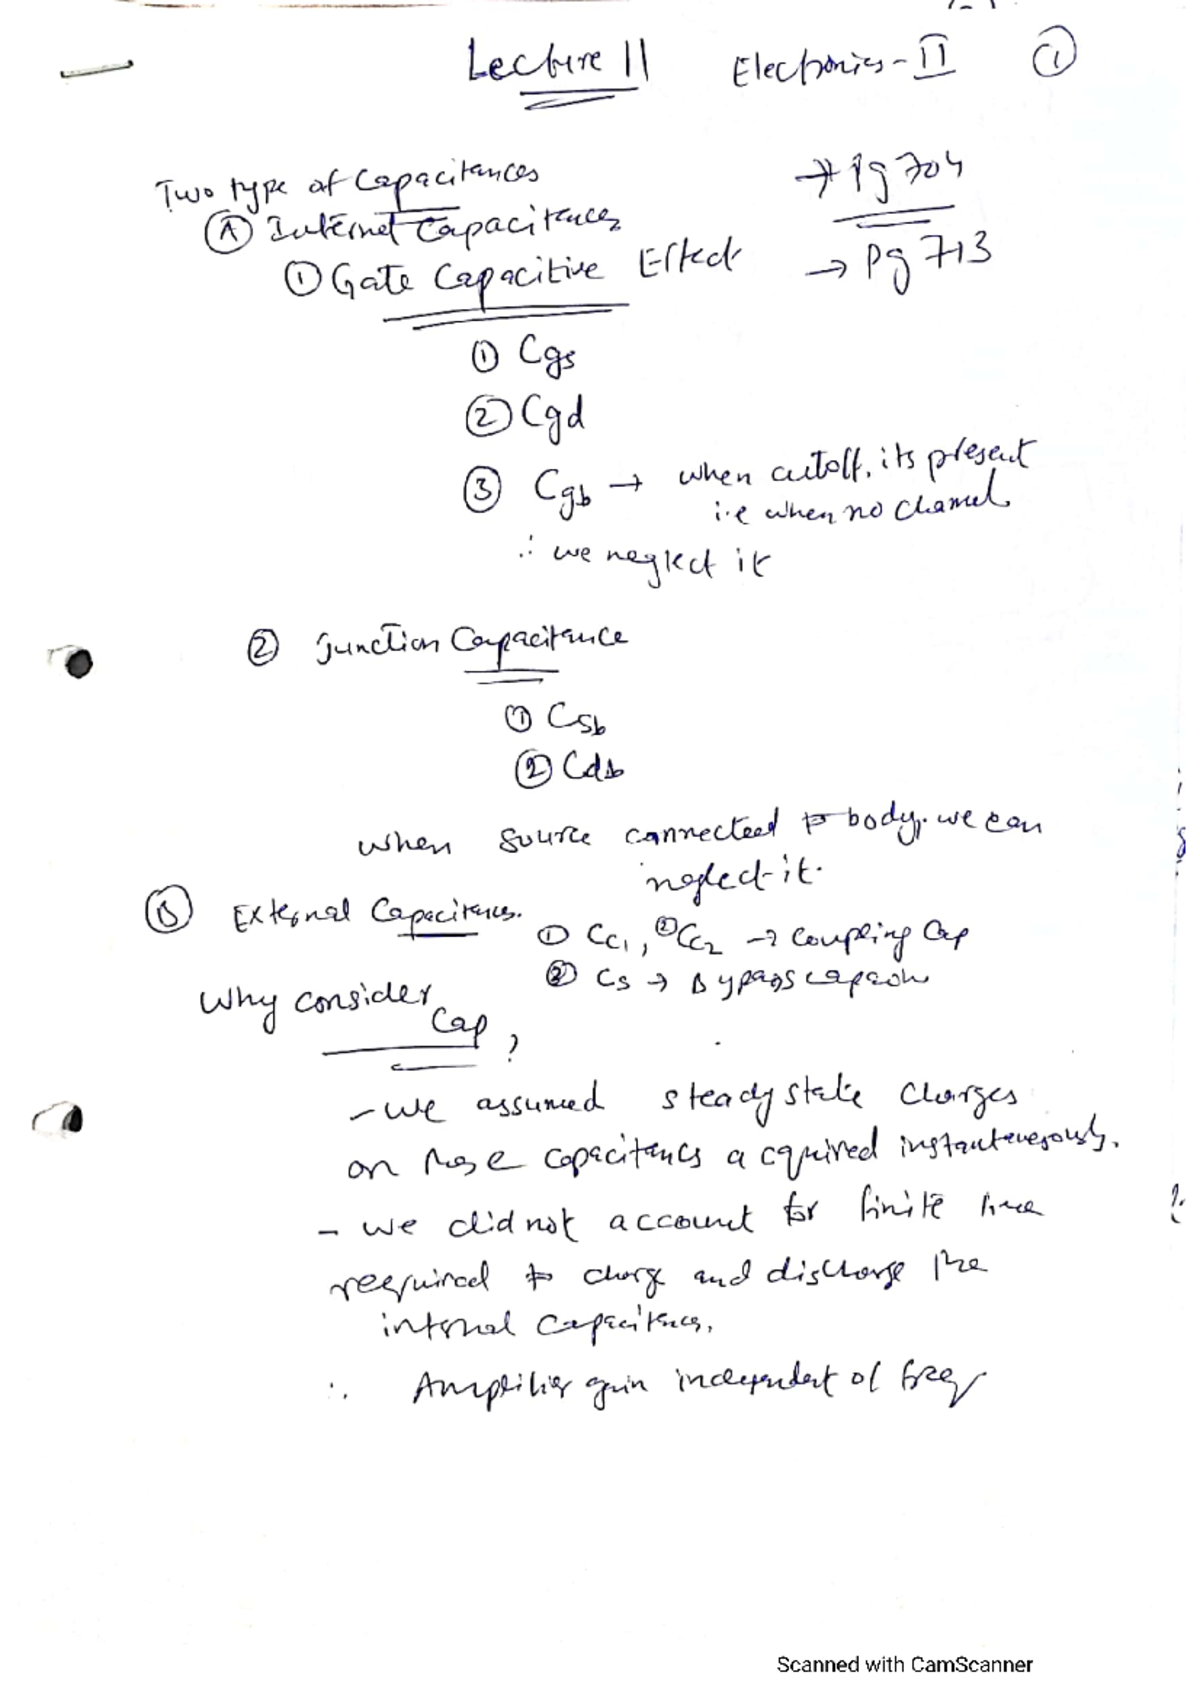 Lecture 11 Electronics - II 1
Two type of Capacitances → Pg 704
A Internal Capacitances
1 Gate Capacitive Effect → Pg 713
1 Cgs
2 Cgd
3 Cgb → when cutoff, its present
i.e when no channel
∴ we neglect it
2 Junction Capacitance
1 Csb
2 Cdb
when source connected to body, we can
neglect it.
B External Capacitances.
1 CC1, 2 CC2 → Coupling Cap
2 Cs → Bypass capacitor
Why consider
Cap ?
- we assumed steady state charges
on these capacitances acquired instantaneously.
- we did not account for finite time
required to charge and discharge the
internal capacitances.
∴ Amplifier gain independent of freq
Scanned with CamScanner